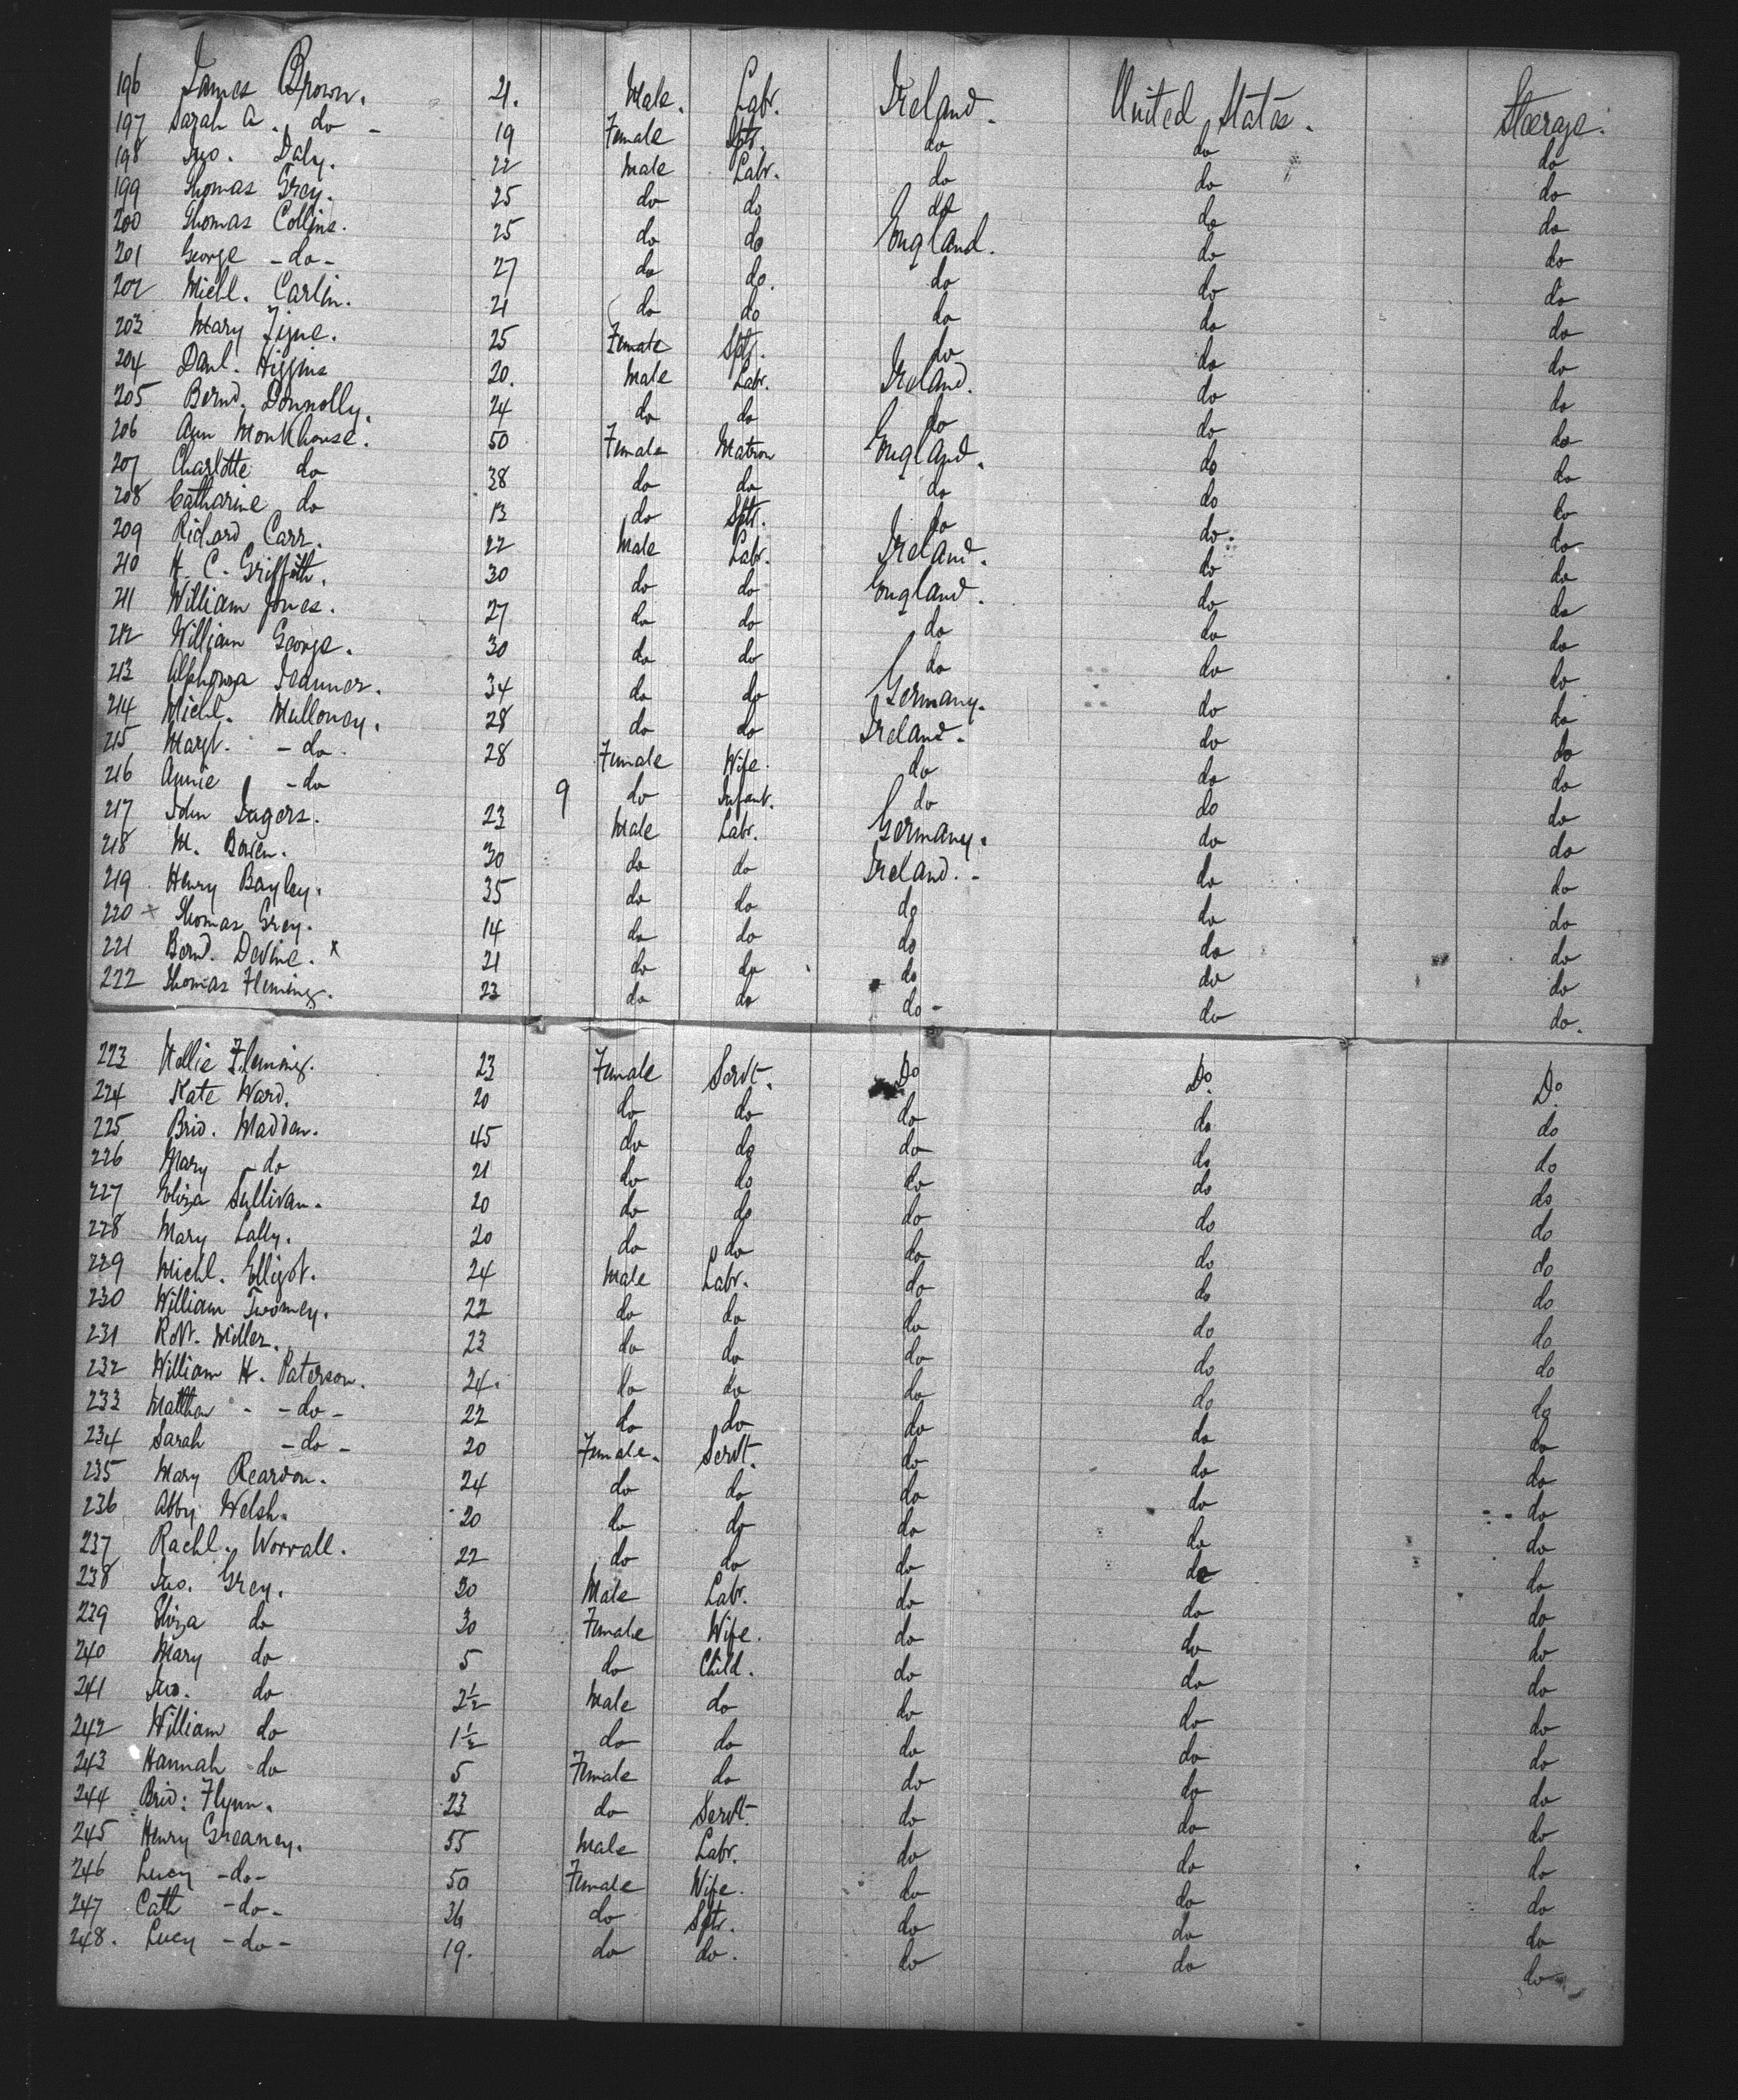 196 James Brown. 21. Male. Labr. Ireland. United States. Steerage.
197 Sarah A. do - 19 Female Sptr. do do do
198 Jno. Daly. 22 Male Labr. do do do
199 Thomas Grey. 25 do do do do do
200 Thomas Collins. 25 do do England. do do
201 George - do - 27 do do. do do do
202 Michl. Carlin. 21 do do do do do
203 Mary 25 Female Sptr. do do do
204 Danl. Higgins 20. Male Labr. Ireland. do do
205 Bernd. Donnolly. 24 do do do do do
206 Ann Monkhouse. 50 Female Matron England. do do
207 Charlotte do 38 do do do do do
208 Catharine do 13 do Sptr. do do do
209 Richard Carr. 22 Male Labr. Ireland. do do
210 H. C. Griffith. 30 do do England. do do
211 William Jones. 27 do do do do do
212 William George. 30 do do do do do
213 34 do do Germany. do do
214 Michl. Mulloney. 28 do do Ireland. do do
215 Margt. - do - 28 Female Wife. do do do
216 Annie - do 9 do Infant. do do do
217 John 23 Male Labr. Germany. do do
218 M. 30 do do Ireland. - do do
219 Henry Bayley. 35 do do do do do
220 x Thomas Grey. 14 do do do do do
221 Bernd. Devine. x 21 do do do do do
222 Thomas Fleming. 23 do do do - do do.
223 Fleming. 23 Female Servt. Do Do. Do.
224 Kate Ward. 20 do do do do do
225 Brid. Madden. 45 do do do do do
226 Mary - do 21 do do do do do
227 Eliza Sullivan. 20 do do do do do
228 Mary Lally. 20 do do do do do
229 Michl. Elligot. 24 Male Labr. do do do
230 William Twomey. 22 do do do do do
231 Robt. Miller. 23 do do do do do
232 William H. Paterson. 24. do do do do do
233 Matthew - - do - 22 do do do do do
234 Sarah - do - 20 Female. Servt. do do do
235 Mary Reardon. 24 do do do do do
236 Abby Welsh. 20 do do do do do
237 Rachl. Worrall. 22 do do do do do
238 Jno. Grey. 30 Male Labr. do do do
239 Eliza do 30 Female Wife. do do do
240 Mary do 5 do Child. do do do
241 Jno. do 2½ Male do do do do
242 William do 1½ do do do do do
243 Hannah do 5 Female do do do do
244 Brid: Flynn. 23 do Servt. do do do
245 Henry Greaney. 55 Male Labr. do do do
246 Lucy - do - 50 Female Wife. do do do
247 Cath - do - do Sptr. do do do
248. Lucy - do - 19. do do. do do do